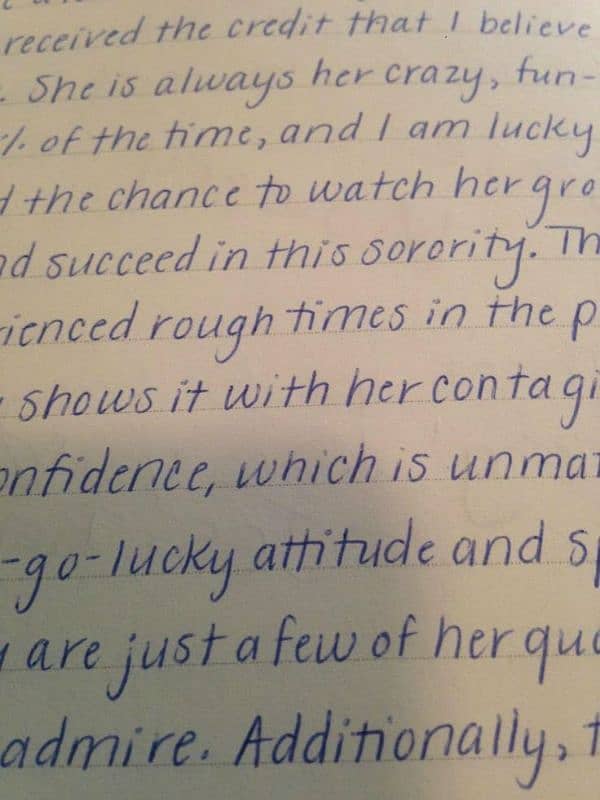 received the credit that I believe
. She is always her crazy, fun-
% of the time, and I am lucky
d the chance to watch her gro
nd succeed in this sorority. Th
rienced rough times in the p
shows it with her contagi
onfidence, which is unmat
-go-lucky attitude and sp
y are just a few of her qua
admire. Additionally, t